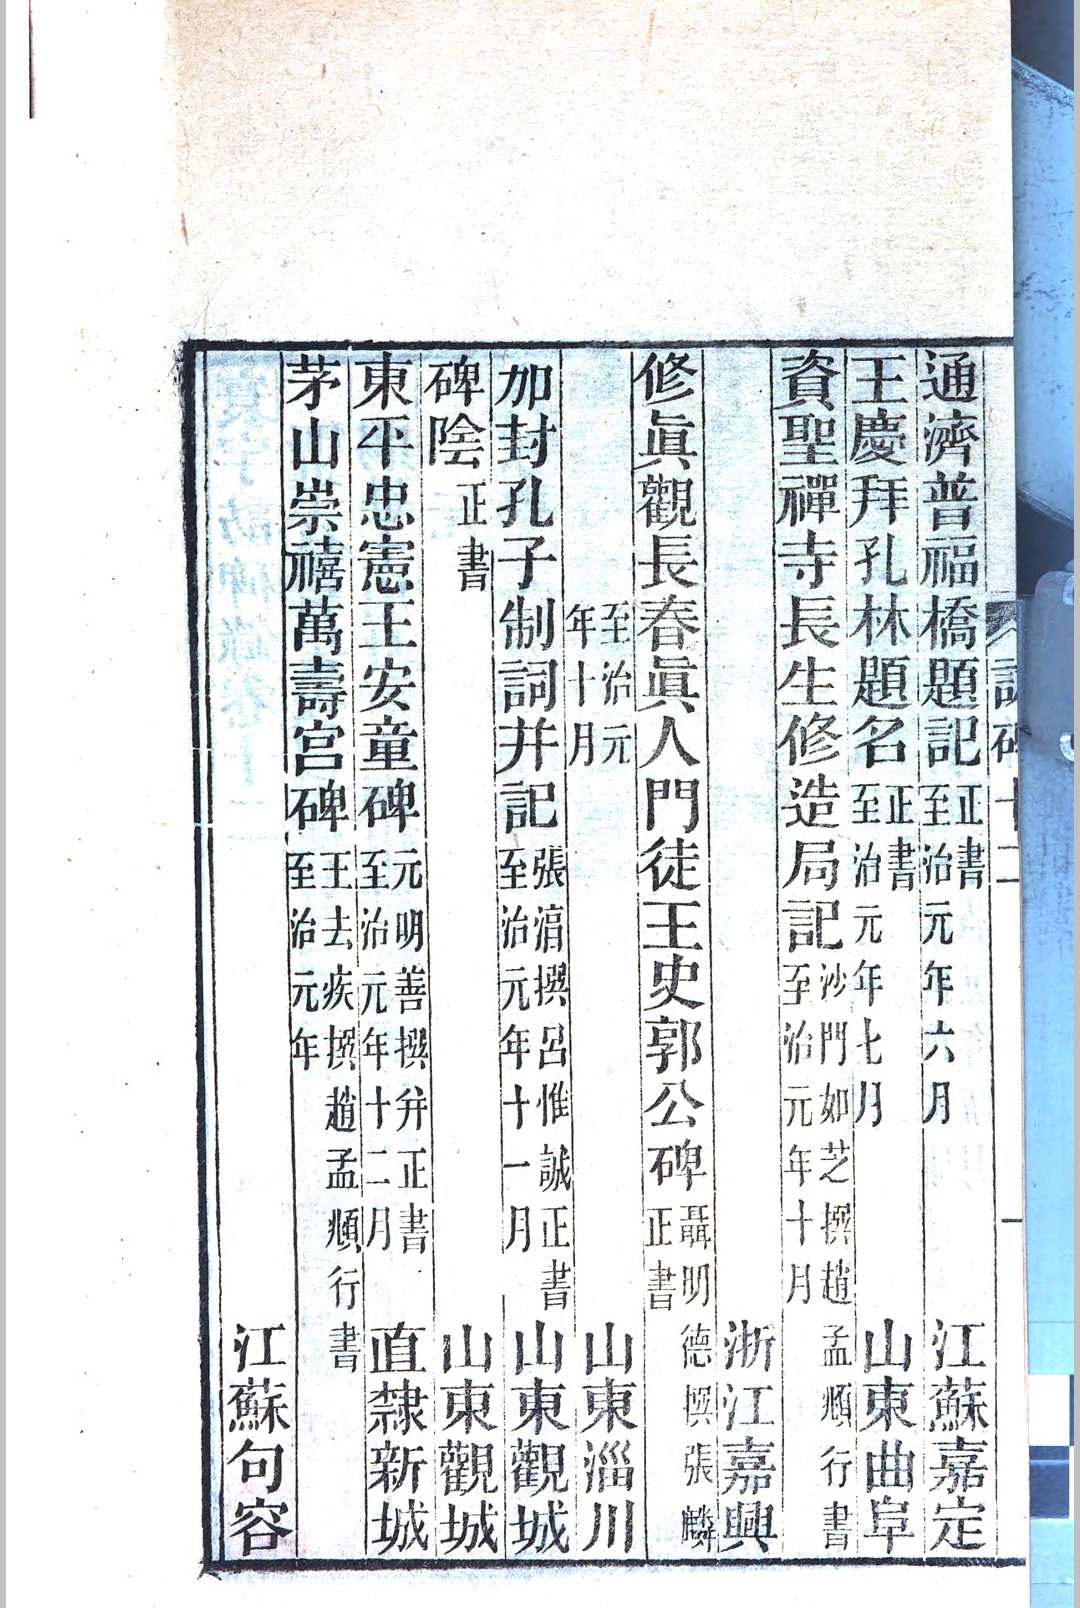 通濟普福橋題記 正書 至治元年六月 江蘇嘉定
王慶拜孔林題名 正書 至治元年七月 山東曲阜
資聖禪寺長生修造局記 沙門如芝撰趙孟頫行書 至治元年十月
浙江嘉興
修眞觀長春眞人門徒王史郭公碑 聶明德撰張麟 正書
至治元年十月 山東淄川
加封孔子制詞并記 張滈撰呂惟誠正書 至治元年十一月 山東觀城
碑陰 正書 山東觀城
東平忠憲王安童碑 元明善撰并正書 至治元年十二月 直隸新城
茅山崇禧萬壽宮碑 王去疾撰趙孟頫行書 至治元年
江蘇句容